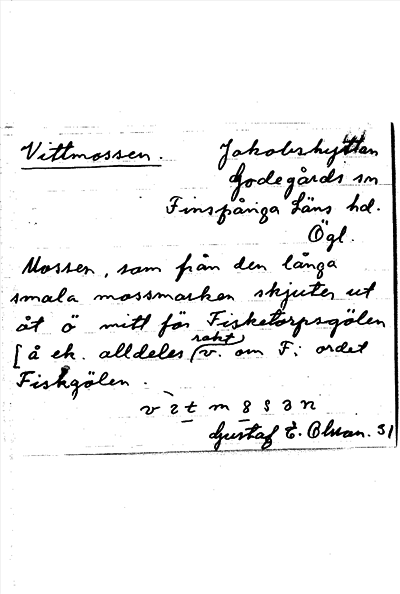 Vittmossen. Jakobshyttan
Godegårds sn
Finspånga Läns hd.
Ögl.
Mossen, som från den långa
smala mossmarken skjuter ut
åt ö mitt för Fisketorpsgölen
[å ek. alldeles rakt v. om F: ordet
Fiskgölen.
Gustaf E. Olsson. 31